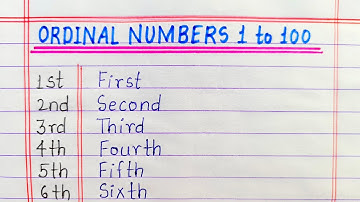 ORDINAL NUMBERS 1 to 100
1st First
2nd Second
3rd Third
4th Fourth
5th Fifth
6th Sixth